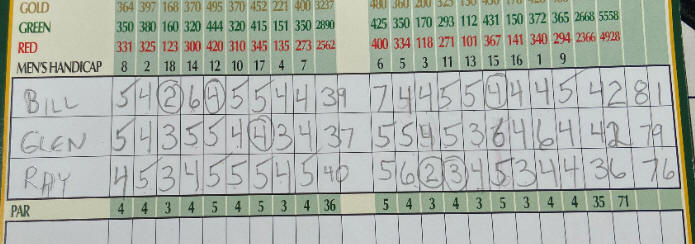 GOLD 364 397 168 370 495 370 452 221 400 3237 480 360 200
GREEN 350 380 160 320 444 320 415 151 350 2890 425 350 170 293 112 431 150 372 365 2668 5558
RED 331 325 123 300 420 310 345 135 273 2562 400 334 118 271 101 367 141 340 294 2366 4928
MEN'S HANDICAP 8 2 18 14 12 10 17 4 7 6 5 3 11 13 15 16 1 9
BILL 5 4 2 6 4 5 5 4 4 39 7 4 4 5 5 4 4 4 5 42 81
GLEN 5 4 3 5 5 4 4 3 4 37 5 5 4 5 3 6 4 6 4 42 79
RAY 4 5 3 4 5 5 5 4 5 40 5 6 2 3 4 5 3 4 4 36 76
PAR 4 4 3 4 5 4 5 3 4 36 5 4 3 4 3 5 3 4 4 35 71